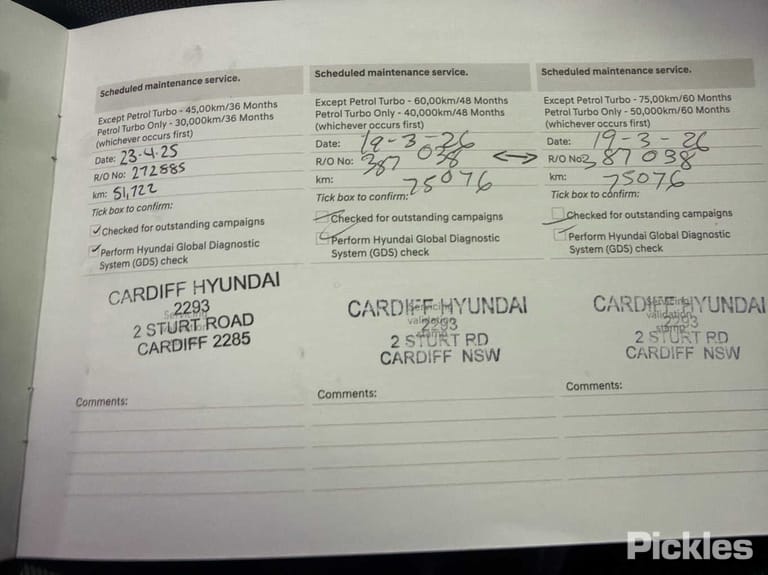 Scheduled maintenance service.
Except Petrol Turbo - 45,00km/36 Months
Petrol Turbo Only - 30,000km/36 Months
(whichever occurs first)
Date: 23-4-25
R/O No: 272885
km: 51,722
Tick box to confirm:
Checked for outstanding campaigns
Perform Hyundai Global Diagnostic
System (GDS) check
CARDIFF HYUNDAI
2293
2 STURT ROAD
CARDIFF 2285
Comments:
Scheduled maintenance service.
Except Petrol Turbo - 60,00km/48 Months
Petrol Turbo Only - 40,000km/48 Months
(whichever occurs first)
Date: 19-3-26
R/O No: 387038
km: 75076
Tick box to confirm:
Checked for outstanding campaigns
Perform Hyundai Global Diagnostic
System (GDS) check
Servicing
validation
stamp
CARDIFF HYUNDAI
2293
2 STURT RD
CARDIFF NSW
Comments:
Scheduled maintenance service.
Except Petrol Turbo - 75,00km/60 Months
Petrol Turbo Only - 50,000km/60 Months
(whichever occurs first)
Date: 19-3-26
R/O No: 387038
km: 75076
Tick box to confirm:
Checked for outstanding campaigns
Perform Hyundai Global Diagnostic
System (GDS) check
Servicing
validation
stamp
CARDIFF HYUNDAI
2293
2 STURT RD
CARDIFF NSW
Comments:
Pickles